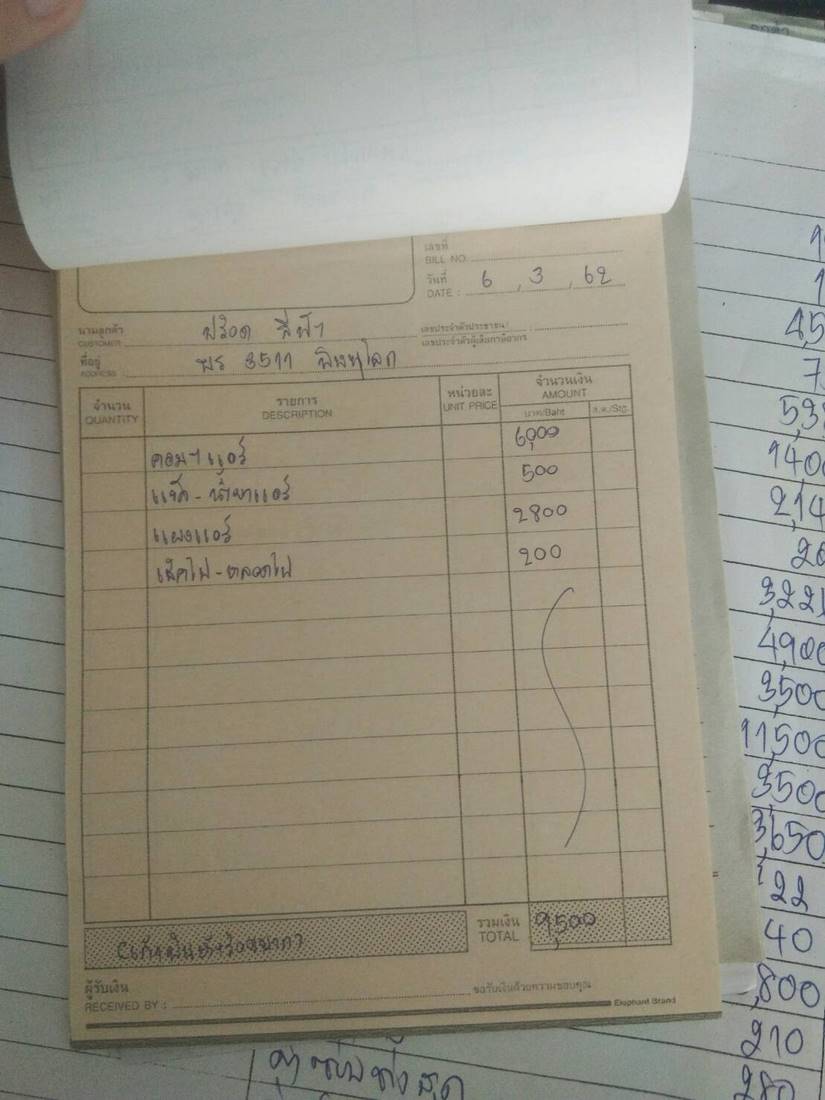 เลขที่
BILL NO.
วันที่ 6, 3, 62
DATE :
นามลูกค้า ฟรอด สีฟ้า
CUSTOMER
เลขประจำตัวประชาชน /
เลขประจำตัวผู้เสียภาษีอากร
ที่อยู่ พร 3511 พิษณุโลก
ADDRESS
จำนวน รายการ หน่วยละ จำนวนเงิน
QUANTITY DESCRIPTION UNIT PRICE AMOUNT
บาท/Baht ส.ต./Stg.
คอมฯ แอร์ 6,000
แว๊ค - น้ำยาแอร์ 500
แผงแอร์ 2800
เช็คไฟ - หลอดไฟ 200
รวมเงิน 9,500
TOTAL
ผู้รับเงิน
RECEIVED BY :
ขอรับเงินด้วยความขอบคุณ
Elephant Brand
4,900
3,500
11,500
3,500
3,650
22
40
,800
210
280